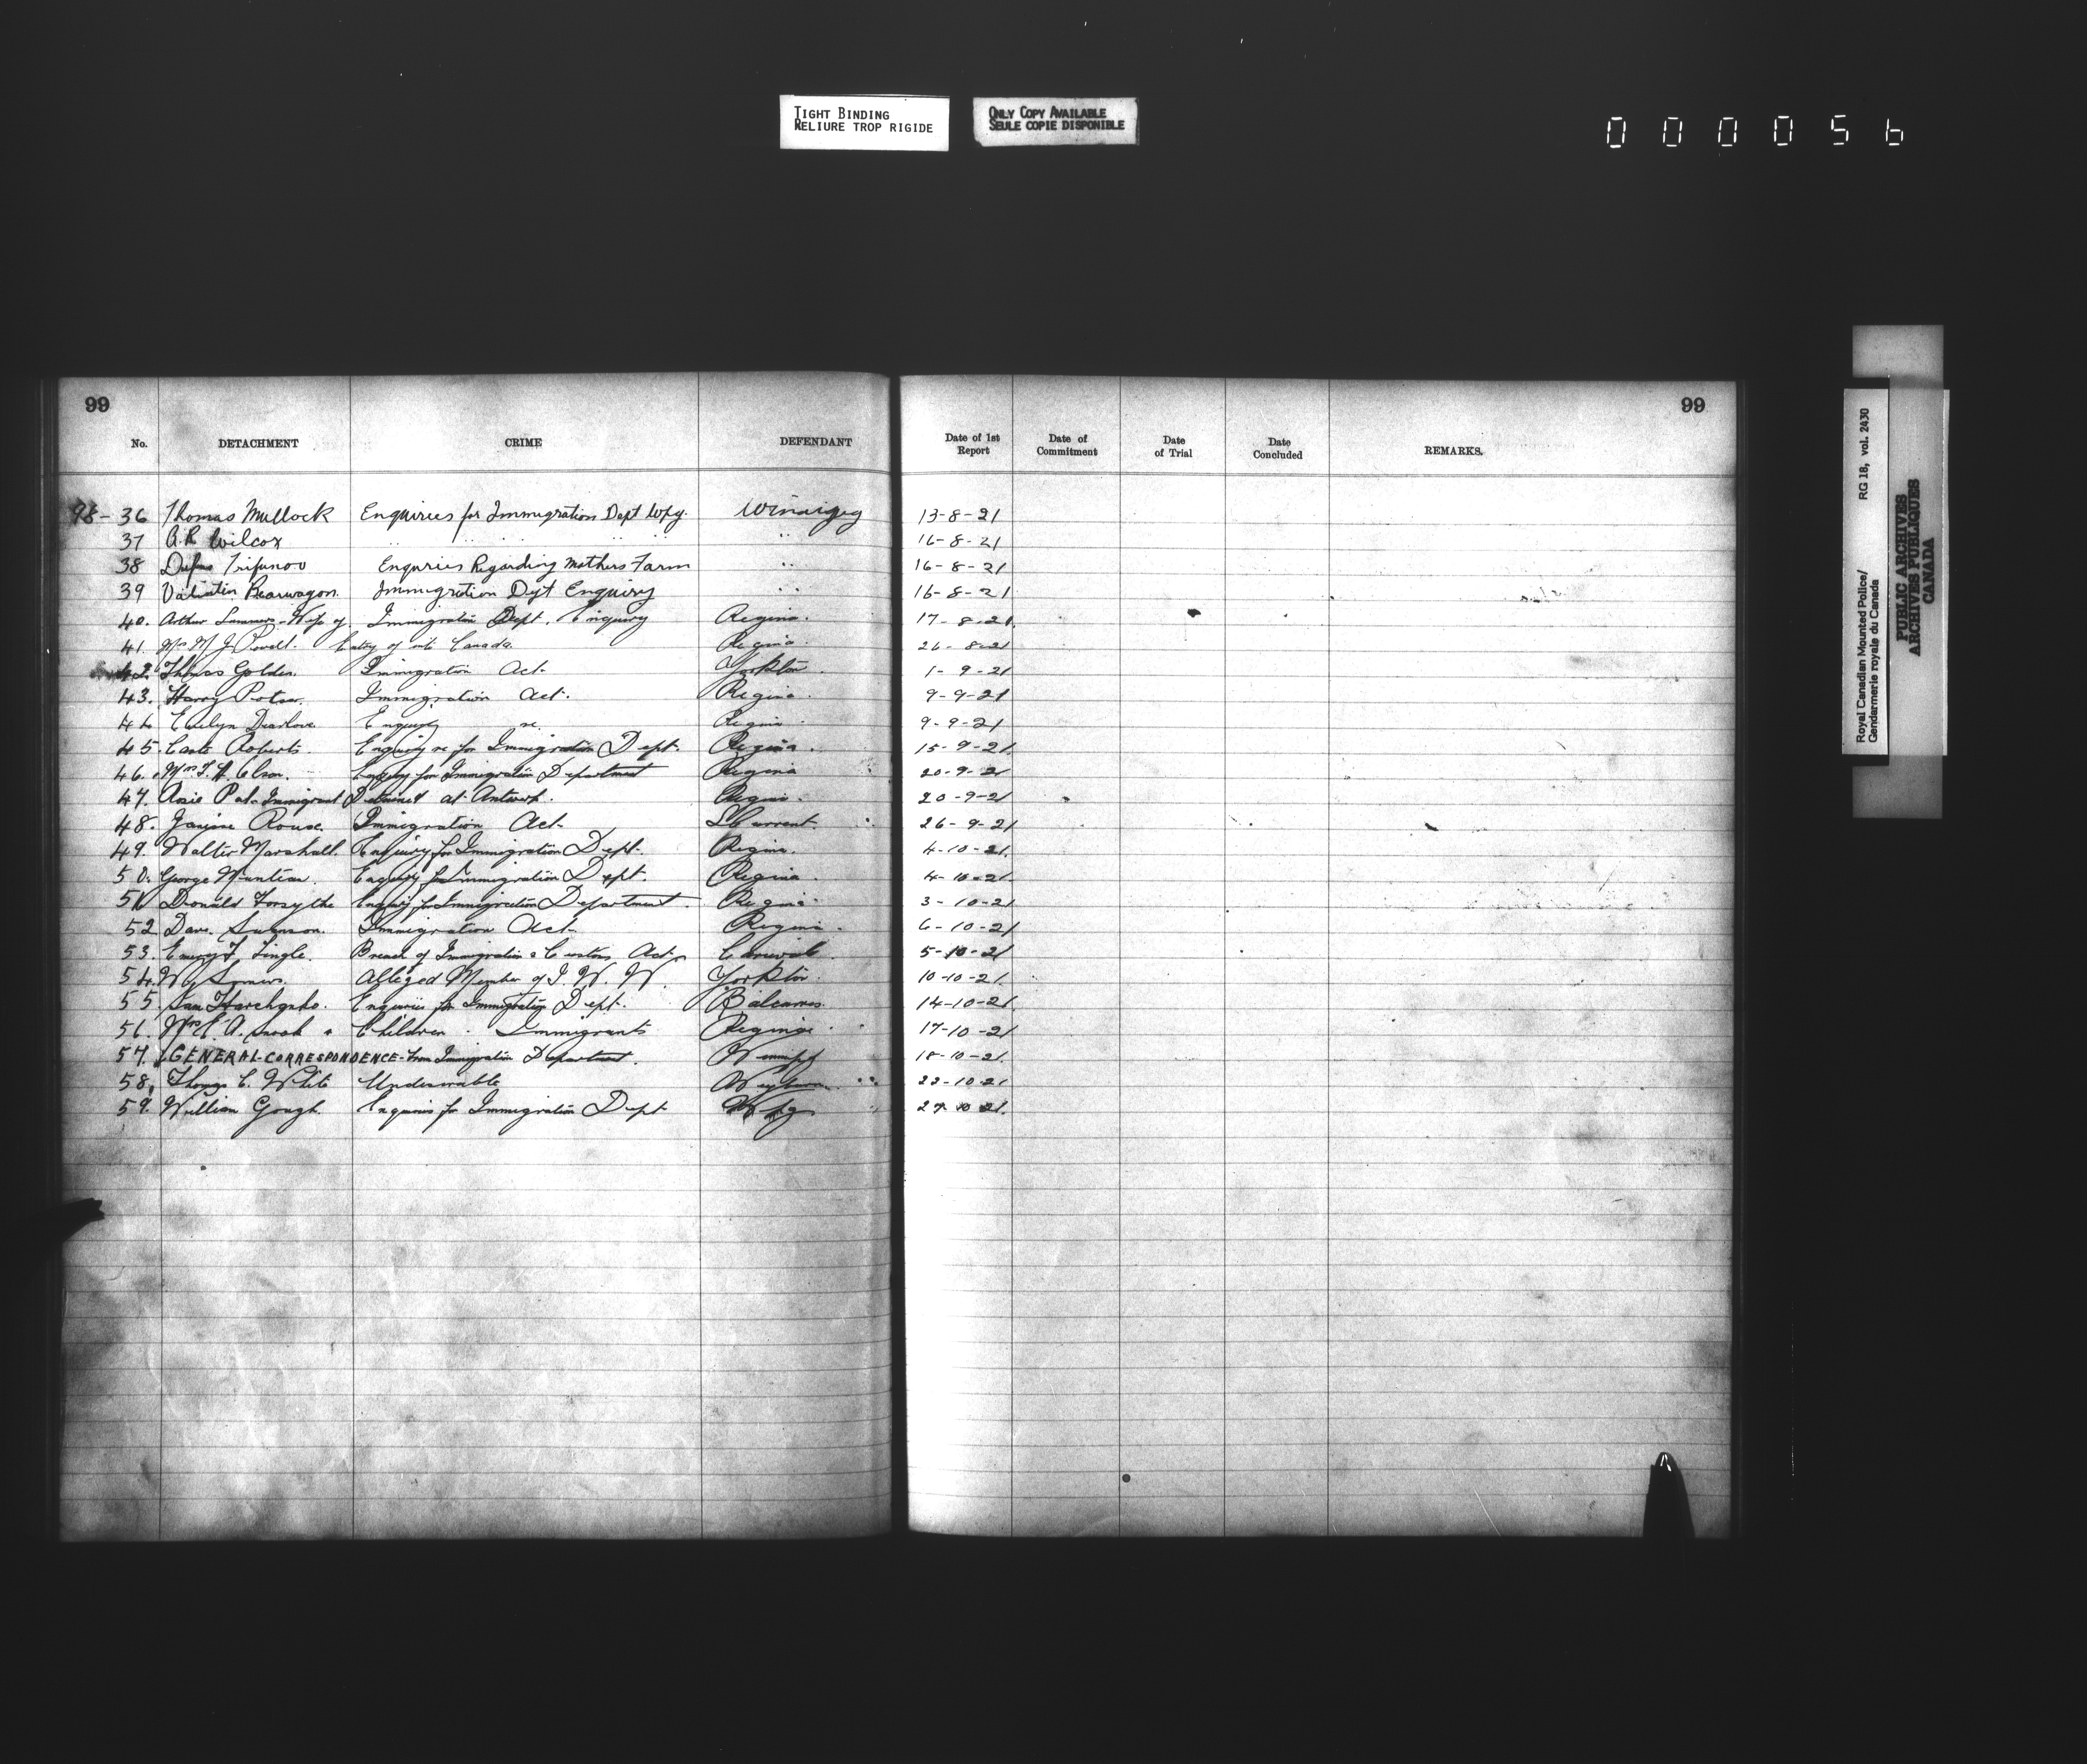 TIGHT BINDING
RELIURE TROP RIGIDE
ONLY COPY AVAILABLE
SEULE COPIE DISPONIBLE
000056
99
99
No. DETACHMENT CRIME DEFENDANT Date of 1st Report Date of Commitment Date of Trial Date Concluded REMARKS.
98-36 Thomas Mullock Enquiries for Immigration Dept Wpg. Winnipeg 13-8-21
37 A.R Wilcox .. .. .. .. .. .. 16-8-21
38 Trifunov Enquries Regarding Mothers Farm .. 16-8-21
39 Valintin Bearwagon. Immigration Dept Enquiry .. 16-8-21
40. Arthur Summers-Wife of. Immigration Dept. Enquiry Regina. 17-8-21.
41. Mrs M J Powell. Entry of into Canada. Regina 26-8-21
42. Thomas Golden. Immigration Act. Yorkton 1-9-21
43. Harry Immigration Act. Regina. 9-9-21
44 Evelyn Dearlove. Enquiry re. Regina 9-9-21
45. Roberts. Enquiry re for Immigration Dept. Regina. 15-9-21.
46. Mrs Olson. Enquiry for Immigration Department Regina 20-9-21
47. Rosie Pal-Immigrant Detained at Antwerp. Regina. 20-9-21
48. Rouse. Immigration Act. S Current. 26-9-21
49. Walter Marshall. Enquiry for Immigration Dept. Regina. 4-10-21.
50. George Muntean. Enquiry for Immigration Dept. Regina. 4-10-21.
51 Donald Forsythe Enquiry for Immigration Department. Regina. 3-10-21
52 Dave Swanson. Immigration Act. Regina. 6-10-21
53. Emery F. Tingle. Breach of Immigration & Customs Act. Carievale. 5-10-21
54. W Somers. Alleged Member of I. W. W. Yorkton. 10-10-21.
55. Sam Enquiries for Immigration Dept. Balcarres. 14-10-21.
56. Mrs E. A. Snook & Children. Immigrants Regina. 17-10-21
57. GENERAL-CORRESPONDENCE-from Immigration Department. 18-10-21.
58. Thomas C. White Undesirable Weyburn. 22-10-21
59. William Gough. Enquiries for Immigration Dept Wpg 27-10-21.
Royal Canadian Mounted Police/ RG 18, vol. 2430
Gendarmerie royale du Canada
PUBLIC ARCHIVES
ARCHIVES PUBLIQUES
CANADA